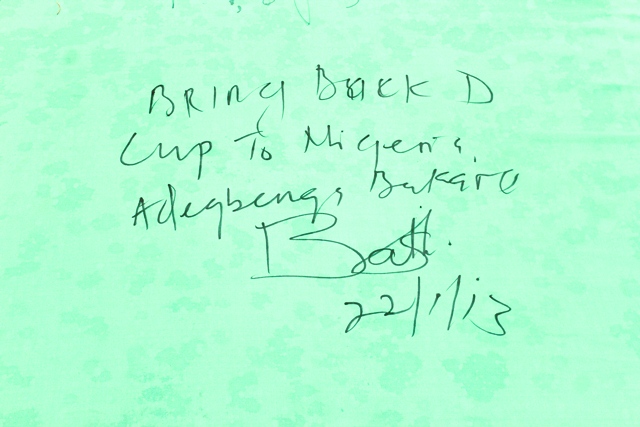 BRING BACK D
Cup To Nigeria,
Adegbenga Bakare
22/1/13